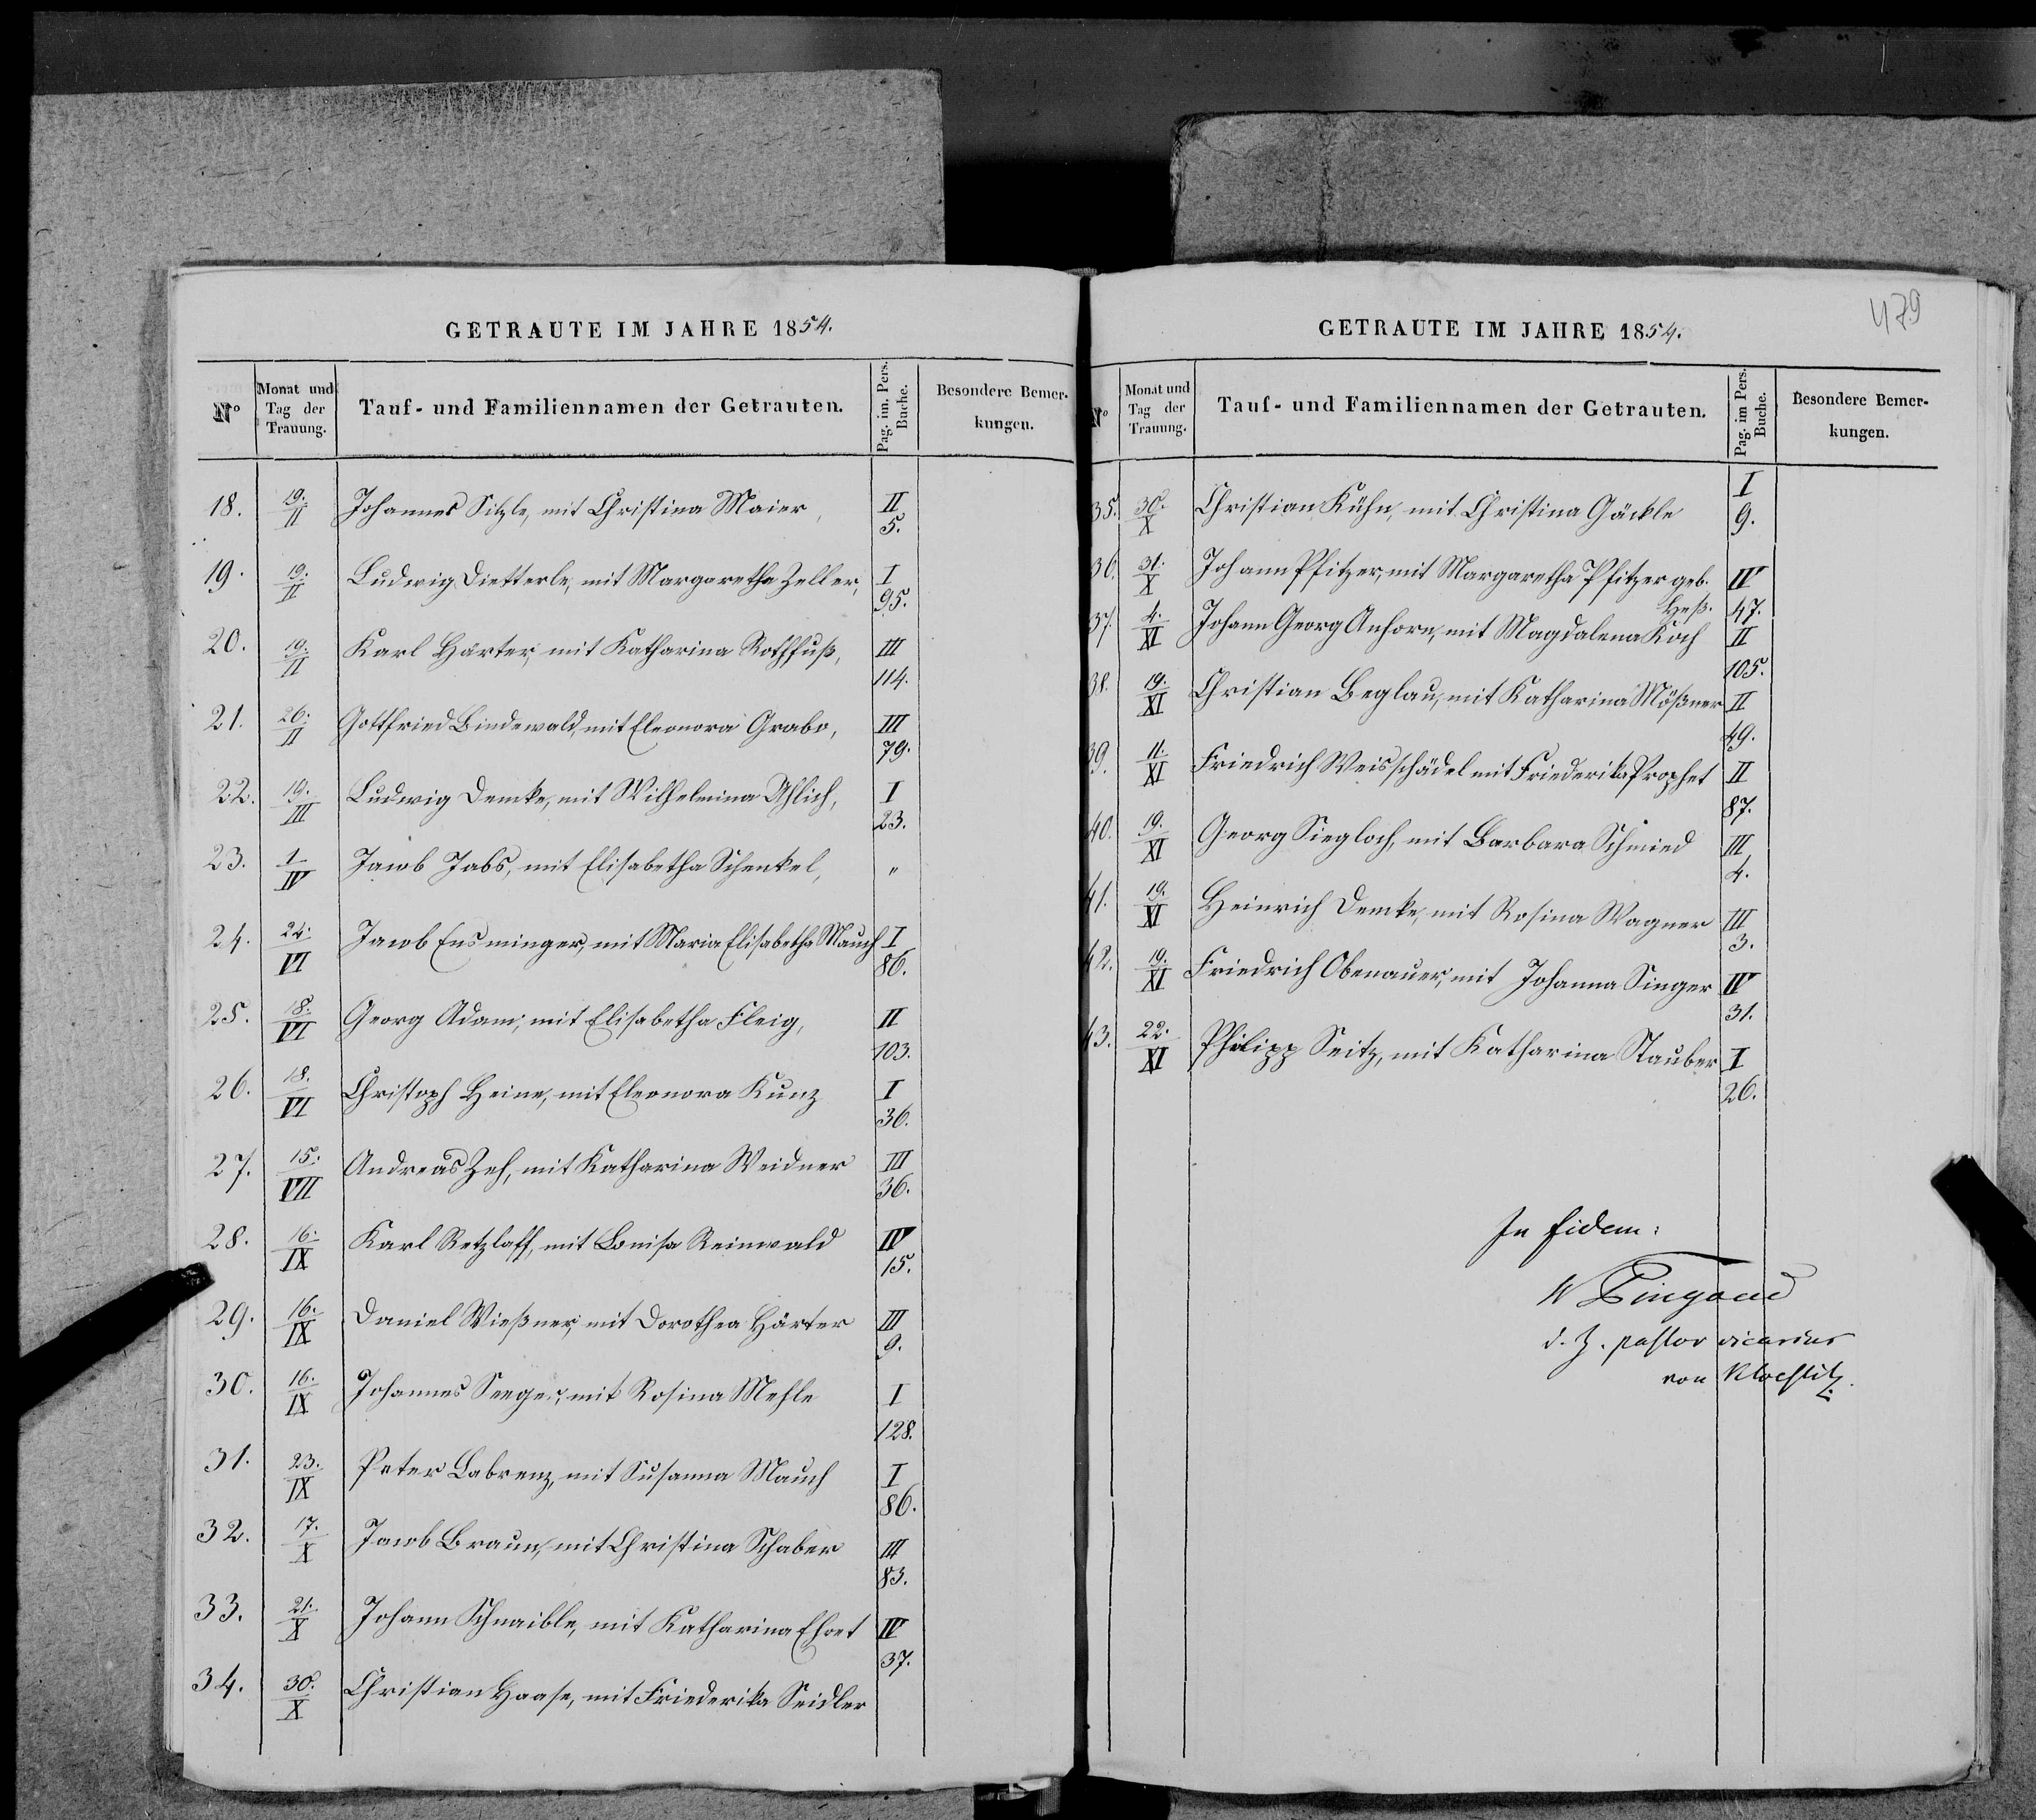 GETRAUTE IM JAHRE 1854.
Nº | Monat und Tag der Trauung. | Tauf- und Familiennamen der Getrauten. | Pag. im. Pers. Buche. | Besondere Bemerkungen.
18. 19./II Johannes Sitzle, mit Christina Maier, II 5.
19. 19./II Ludwig Dietterle, mit Margaretha Zeller, I 95.
20. 19./II Karl Härter, mit Katharina Rothfuß, III 114.
21. 26./II Gottfried Bindewald, mit Eleonora Grabo, III 79.
22. 19./III Ludwig Demke, mit Wilhelmina Uhlich, I 23.
23. 1/IV Jacob Jabs, mit Elisabetha Schenkel, "
24. 24./VI Jacob Ensminger, mit Maria Elisabetha Mauch I 86.
25. 18./VI Georg Adam, mit Elisabetha Fleig, II 103.
26. 18./VI Christoph Heine, mit Eleonora Kunz I 36.
27. 15./VII Andreas Zeh, mit Katharina Weidner III 36.
28. 16./IX Karl Retzlaff, mit Louisa Reinwald IV 15.
29. 16./IX Daniel Wießner, mit Dorothea Härter III 9.
30. 16./IX Johannes Seeger, mit Rosina Mehle I 128.
31. 23./IX Peter Labrenz, mit Susanna Mauch I 86.
32. 17./X Jacob Braun, mit Christina Schaber III 83.
33. 21./X Johann Schnaible, mit Katharina Ehret IV 37.
34. 30./X Christian Haase, mit Friederika Seidler
479
GETRAUTE IM JAHRE 1854.
Nº | Monat und Tag der Trauung. | Tauf- und Familiennamen der Getrauten. | Pag. im Pers. Buche. | Besondere Bemerkungen.
35. 30./X Christian Kühn, mit Christina Gäckle I 9.
36. 31./X Johann Pfitzer, mit Margaretha Pfitzer geb. Heß. IV 47.
37. 4./XI Johann Georg Anhorn, mit Magdalena Koch II 105.
38. 19./XI Christian Beglau, mit Katharina Mößner II 49.
39. 11./XI Friedrich Weisschädel mit Friederika Prophet II 87.
40. 19./XI Georg Siegloch, mit Barbara Schmied III 4.
41. 19./XI Heinrich Demke, mit Rosina Wagner III 3.
42. 19./XI Friedrich Obenauer, mit Johanna Singer IV 31.
43. 22./XI Philipp Seitz, mit Katharina Stauber I 26.
In fidem:
W Pingoud
d. Z. pastor vicarius
von Kloestitz.